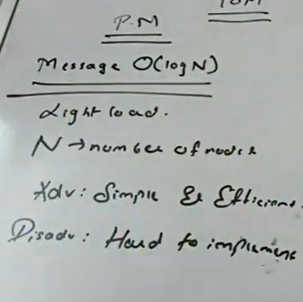 P.M
Message O(log N)
Light load.
N → number of nodes
Adv: Simple & Efficient.
Disadv: Hard to implement